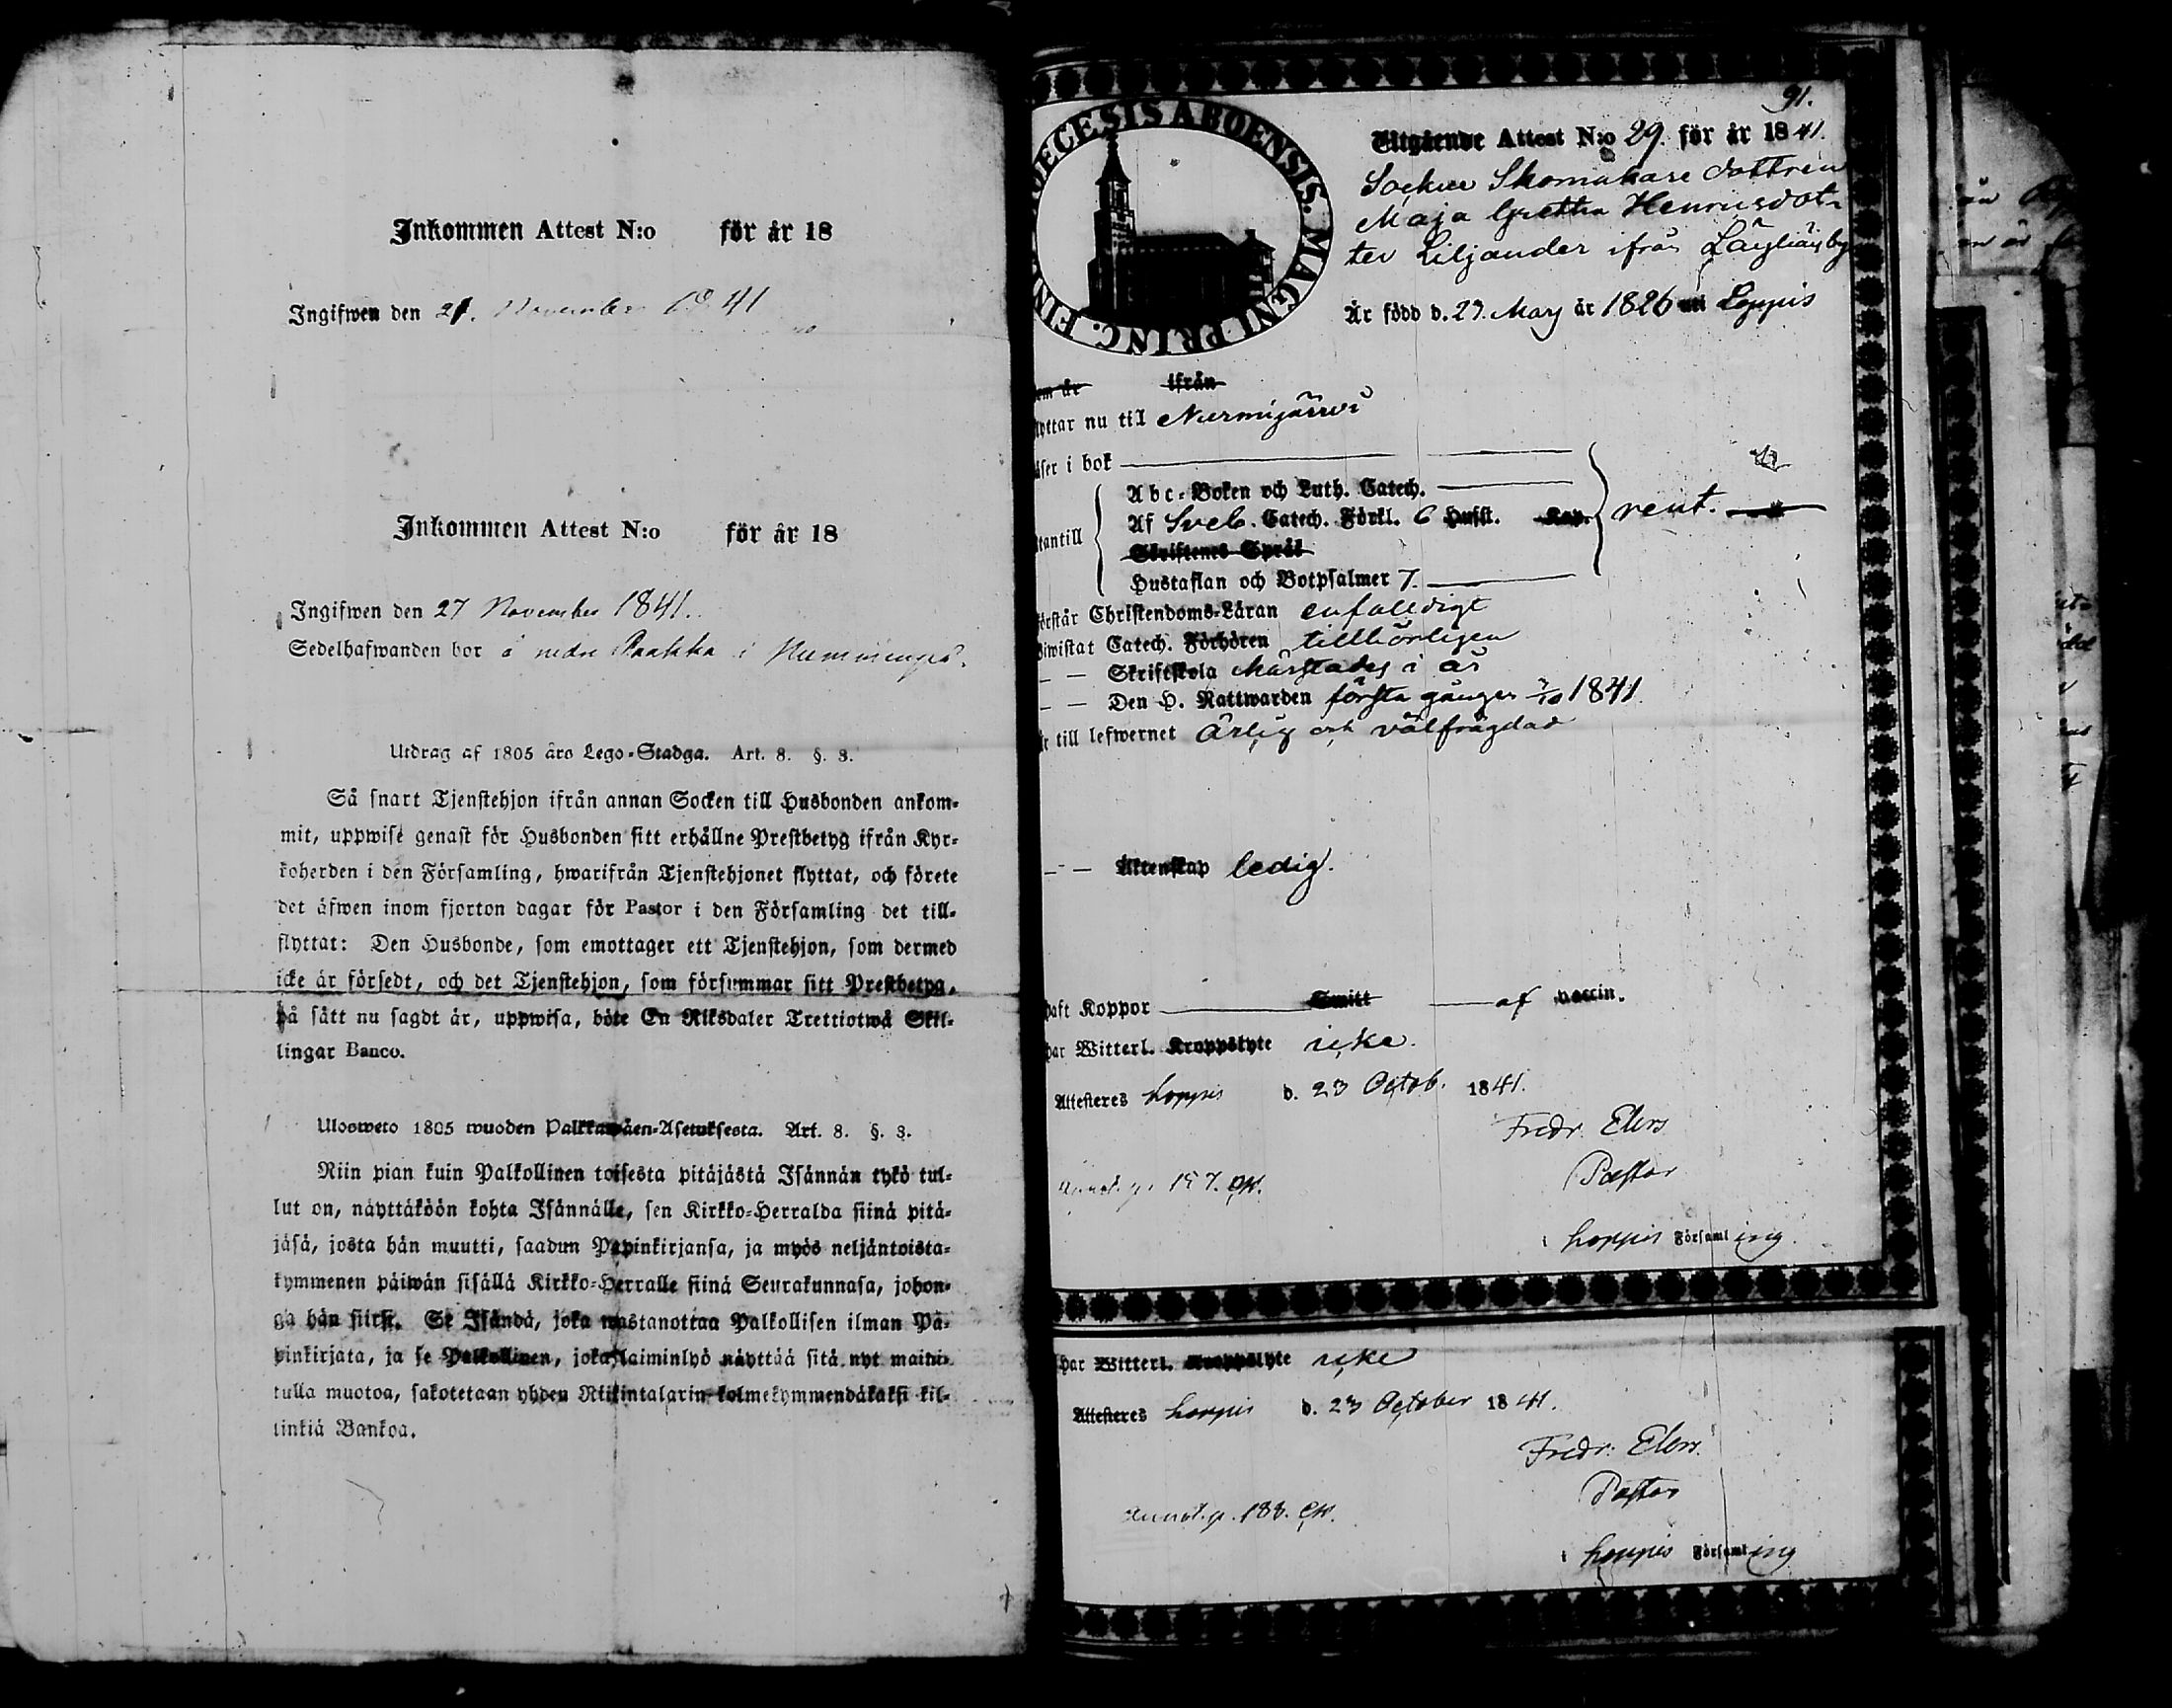 Inkommen Attest N:o för år 18
Ingifwen den 21. November 1841
Inkommen Attest N:o för år 18
Ingifwen den 27 November 1841.
Sedelhafwanden bor å nedre Paakka i
Utdrag af 1805 års Lego-Stadga. Art. 8. §. 3.
Så snart Tjenstehjon ifrån annan Socken till Husbonden ankom-
mit, uppwise genast för Husbonden sitt erhållne Prestbetyg ifrån Kyr-
koherden i den Församling, hwarifrån Tjenstehjonet flyttat, och förete
det äfwen inom fjorton dagar för Pastor i den Församling det till-
flyttat: Den Husbonde, som emottager ett Tjenstehjon, som dermed
icke är försedt, och det Tjenstehjon, som försummar sitt Prestbetyg,
på sätt nu sagdt är, uppwisa, böte En Riksdaler Trettiotwå Skil-
lingar Banco.
Ulosweto 1805 wuoden Palkkawäen-Asetuksesta. Art. 8. §. 3.
Niin pian kuin Palkollinen toisesta pitäjästä Isännän tykö tul-
lut on, näyttäköön kohta Isännälle, sen Kirkko-Herralda siinä pitä-
jäsä, josta hän muutti, saadun Papinkirjansa, ja myös neljäntoista-
kymmenen päiwän sisällä Kirkko-Herralle siinä Seurakunnasa, johon-
ga hän siirsi. Se Isändä, joka wastanottaa Palkollisen ilman Pa-
pinkirjata, ja se Palkollinen, joka laiminlyö näyttää sitä nyt maini-
tulla muotoa, sakotetaan yhden Riikintalarin kolmekymmendäkaksi kil-
linkiä Bankoa.
91.
ŒCESIS ABOENSIS. MAGNI PRINC. FIN
Utgående Attest N:o 29. för år 1841.
Sockne Skomakare dottren
Maja Gretha Henricsdot-
ter Liljander ifrån Läyliäis by
Är född d. 23. Maij år 1826 uti Loppis
om år ifrån
yttar nu til Nurmijärwi
äser i bok
Abc-Boken och Luth. Catech.
Af Sveb. Catech. Förkl. 6 Hufst. Kap. rent.
utantill
Skriftenes Språk
Hustaflan och Botpsalmer 7.
örstår Christendoms-Läran enfalldigt
iwistat Catech. Förhören tillbörligen
— — Skriftskola i år
— — Den H. Nattwarden första gången 3/10 1841.
r till lefwernet Ärlig och välfrägdad
— — Äktenskap ledig.
haft Koppor Smitt af vaccin.
har Witterl. Kroppslyte icke.
Attesteres Loppis d. 23 Octob. 1841.
Fredr. Elers
Pastor
Annot. p. 187. CM.
i Loppis Församling.
har Witterl. Kroppslyte icke
Attesteres Loppis d. 23 October 1841.
Fredr. Elers
Pastor
Annot. p. 188. CM.
i Loppis Församling